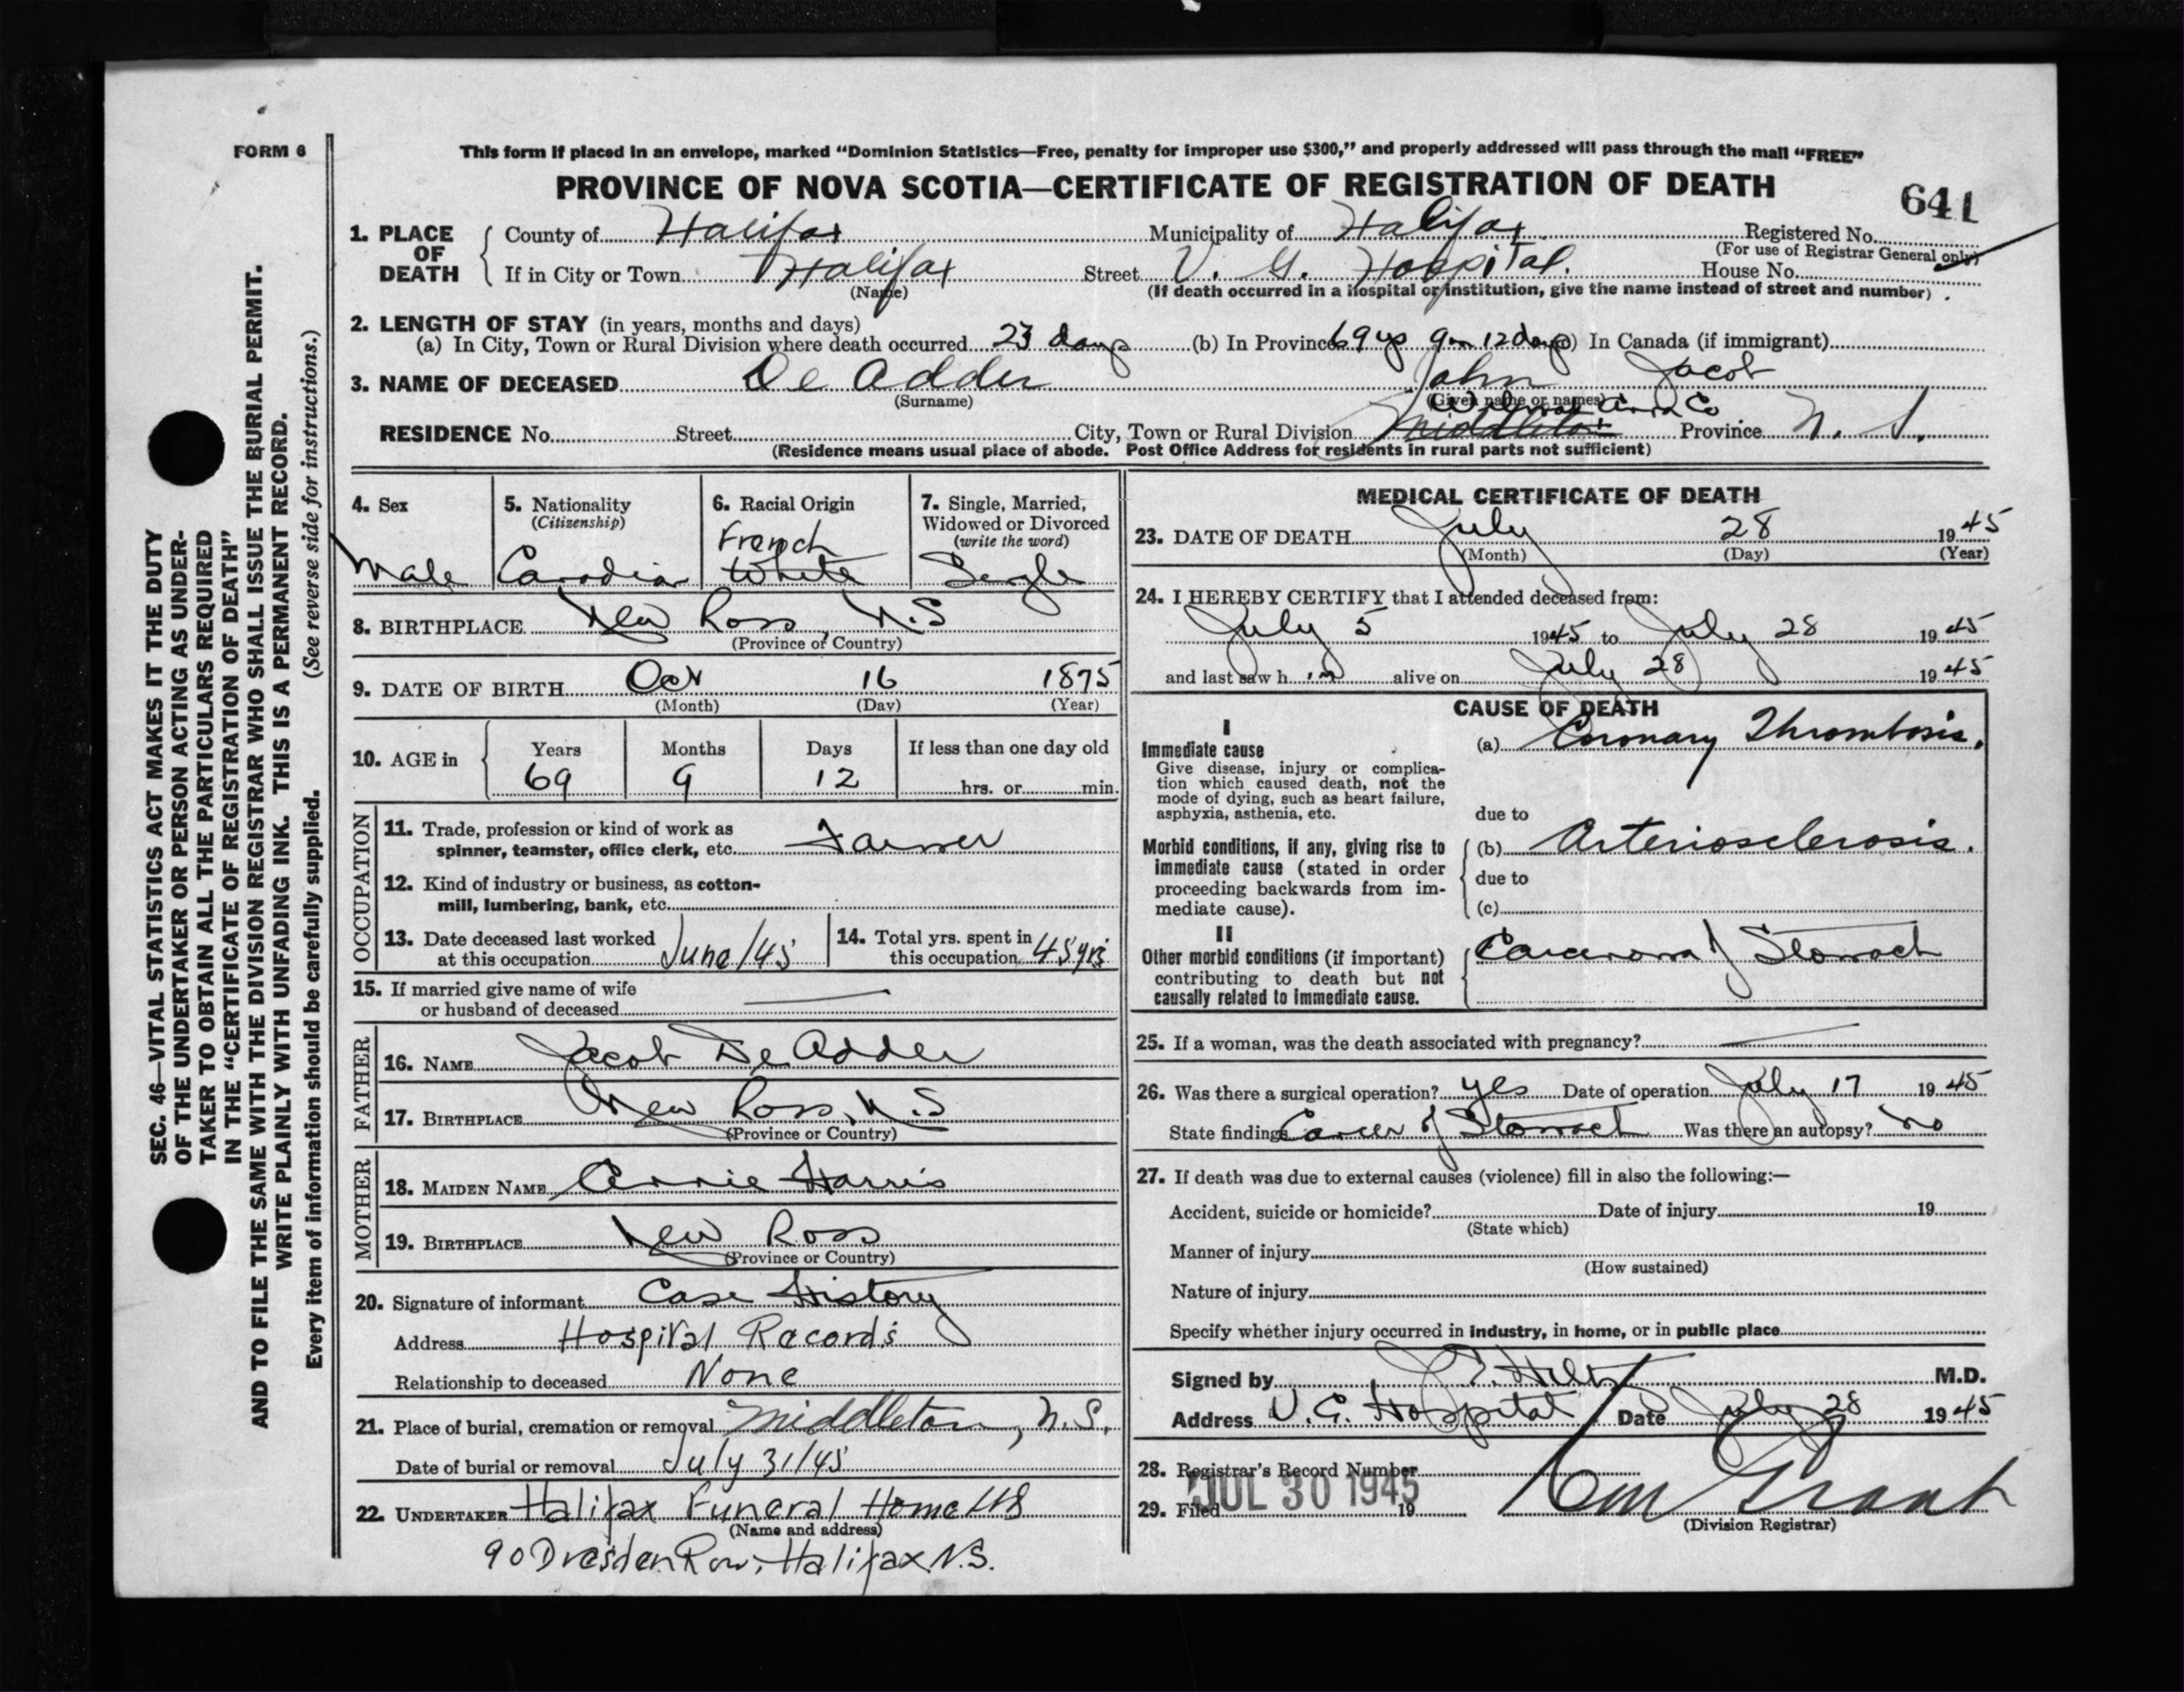 FORM 6
This form if placed in an envelope, marked "Dominion Statistics—Free, penalty for improper use $300," and properly addressed will pass through the mail "FREE"
PROVINCE OF NOVA SCOTIA—CERTIFICATE OF REGISTRATION OF DEATH
641
1. PLACE OF DEATH County of Halifax Municipality of Halifax Registered No.
(For use of Registrar General only)
If in City or Town Halifax Street V. G. Hospital. House No.
(Name) (If death occurred in a hospital or institution, give the name instead of street and number)
2. LENGTH OF STAY (in years, months and days)
(a) In City, Town or Rural Division where death occurred 23 days (b) In Province 69 yrs 9 m 12 days (c) In Canada (if immigrant)
3. NAME OF DECEASED De Adder John Jacob
(Surname) (Given name or names)
Wilmot Anna Co
RESIDENCE No. Street City, Town or Rural Division Middleton Province N. S.
(Residence means usual place of abode. Post Office Address for residents in rural parts not sufficient)
4. Sex
Male
5. Nationality
(Citizenship)
Canadian
6. Racial Origin
French
White
7. Single, Married,
Widowed or Divorced
(write the word)
Single
8. BIRTHPLACE New Ross, N.S
(Province or Country)
9. DATE OF BIRTH Oct 16 1875
(Month) (Day) (Year)
10. AGE in Years Months Days If less than one day old
69 9 12 hrs. or min.
OCCUPATION
11. Trade, profession or kind of work as
spinner, teamster, office clerk, etc. Farmer
12. Kind of industry or business, as cotton-
mill, lumbering, bank, etc.
13. Date deceased last worked
at this occupation June/45
14. Total yrs. spent in
this occupation 45 yrs
15. If married give name of wife
or husband of deceased
FATHER
16. NAME Jacob De Adder
17. BIRTHPLACE New Ross, N.S
(Province or Country)
MOTHER
18. MAIDEN NAME Annie Harris
19. BIRTHPLACE New Ross
(Province or Country)
20. Signature of informant Case History
Address Hospital Records
Relationship to deceased None
21. Place of burial, cremation or removal Middleton, N.S.
Date of burial or removal July 31/45
22. UNDERTAKER Halifax Funeral Home Ltd
(Name and address)
90 Dresden Row, Halifax N.S.
MEDICAL CERTIFICATE OF DEATH
23. DATE OF DEATH July 28 1945
(Month) (Day) (Year)
24. I HEREBY CERTIFY that I attended deceased from:
July 5 1945 to July 28 1945
and last saw h im alive on July 28 1945
CAUSE OF DEATH
I
Immediate cause
Give disease, injury or complica-
tion which caused death, not the
mode of dying, such as heart failure,
asphyxia, asthenia, etc.
(a) Coronary Thrombosis.
due to
Morbid conditions, if any, giving rise to
immediate cause (stated in order
proceeding backwards from im-
mediate cause).
(b) Arteriosclerosis.
due to
(c)
II
Other morbid conditions (if important)
contributing to death but not
causally related to immediate cause.
Carcinoma of Stomach
25. If a woman, was the death associated with pregnancy?
26. Was there a surgical operation? yes Date of operation July 17 1945
State findings Cancer of Stomach Was there an autopsy? No
27. If death was due to external causes (violence) fill in also the following:—
Accident, suicide or homicide? Date of injury 19
(State which)
Manner of injury
(How sustained)
Nature of injury
Specify whether injury occurred in industry, in home, or in public place
Signed by M.D.
Address V.G. Hospital Date July 28 1945
28. Registrar's Record Number
29. Filed JUL 30 1945 19 Grant
(Division Registrar)
SEC. 46—VITAL STATISTICS ACT MAKES IT THE DUTY
OF THE UNDERTAKER OR PERSON ACTING AS UNDER-
TAKER TO OBTAIN ALL THE PARTICULARS REQUIRED
IN THE "CERTIFICATE OF REGISTRATION OF DEATH"
AND TO FILE THE SAME WITH THE DIVISION REGISTRAR WHO SHALL ISSUE THE BURIAL PERMIT.
WRITE PLAINLY WITH UNFADING INK. THIS IS A PERMANENT RECORD.
Every item of information should be carefully supplied. (See reverse side for instructions.)